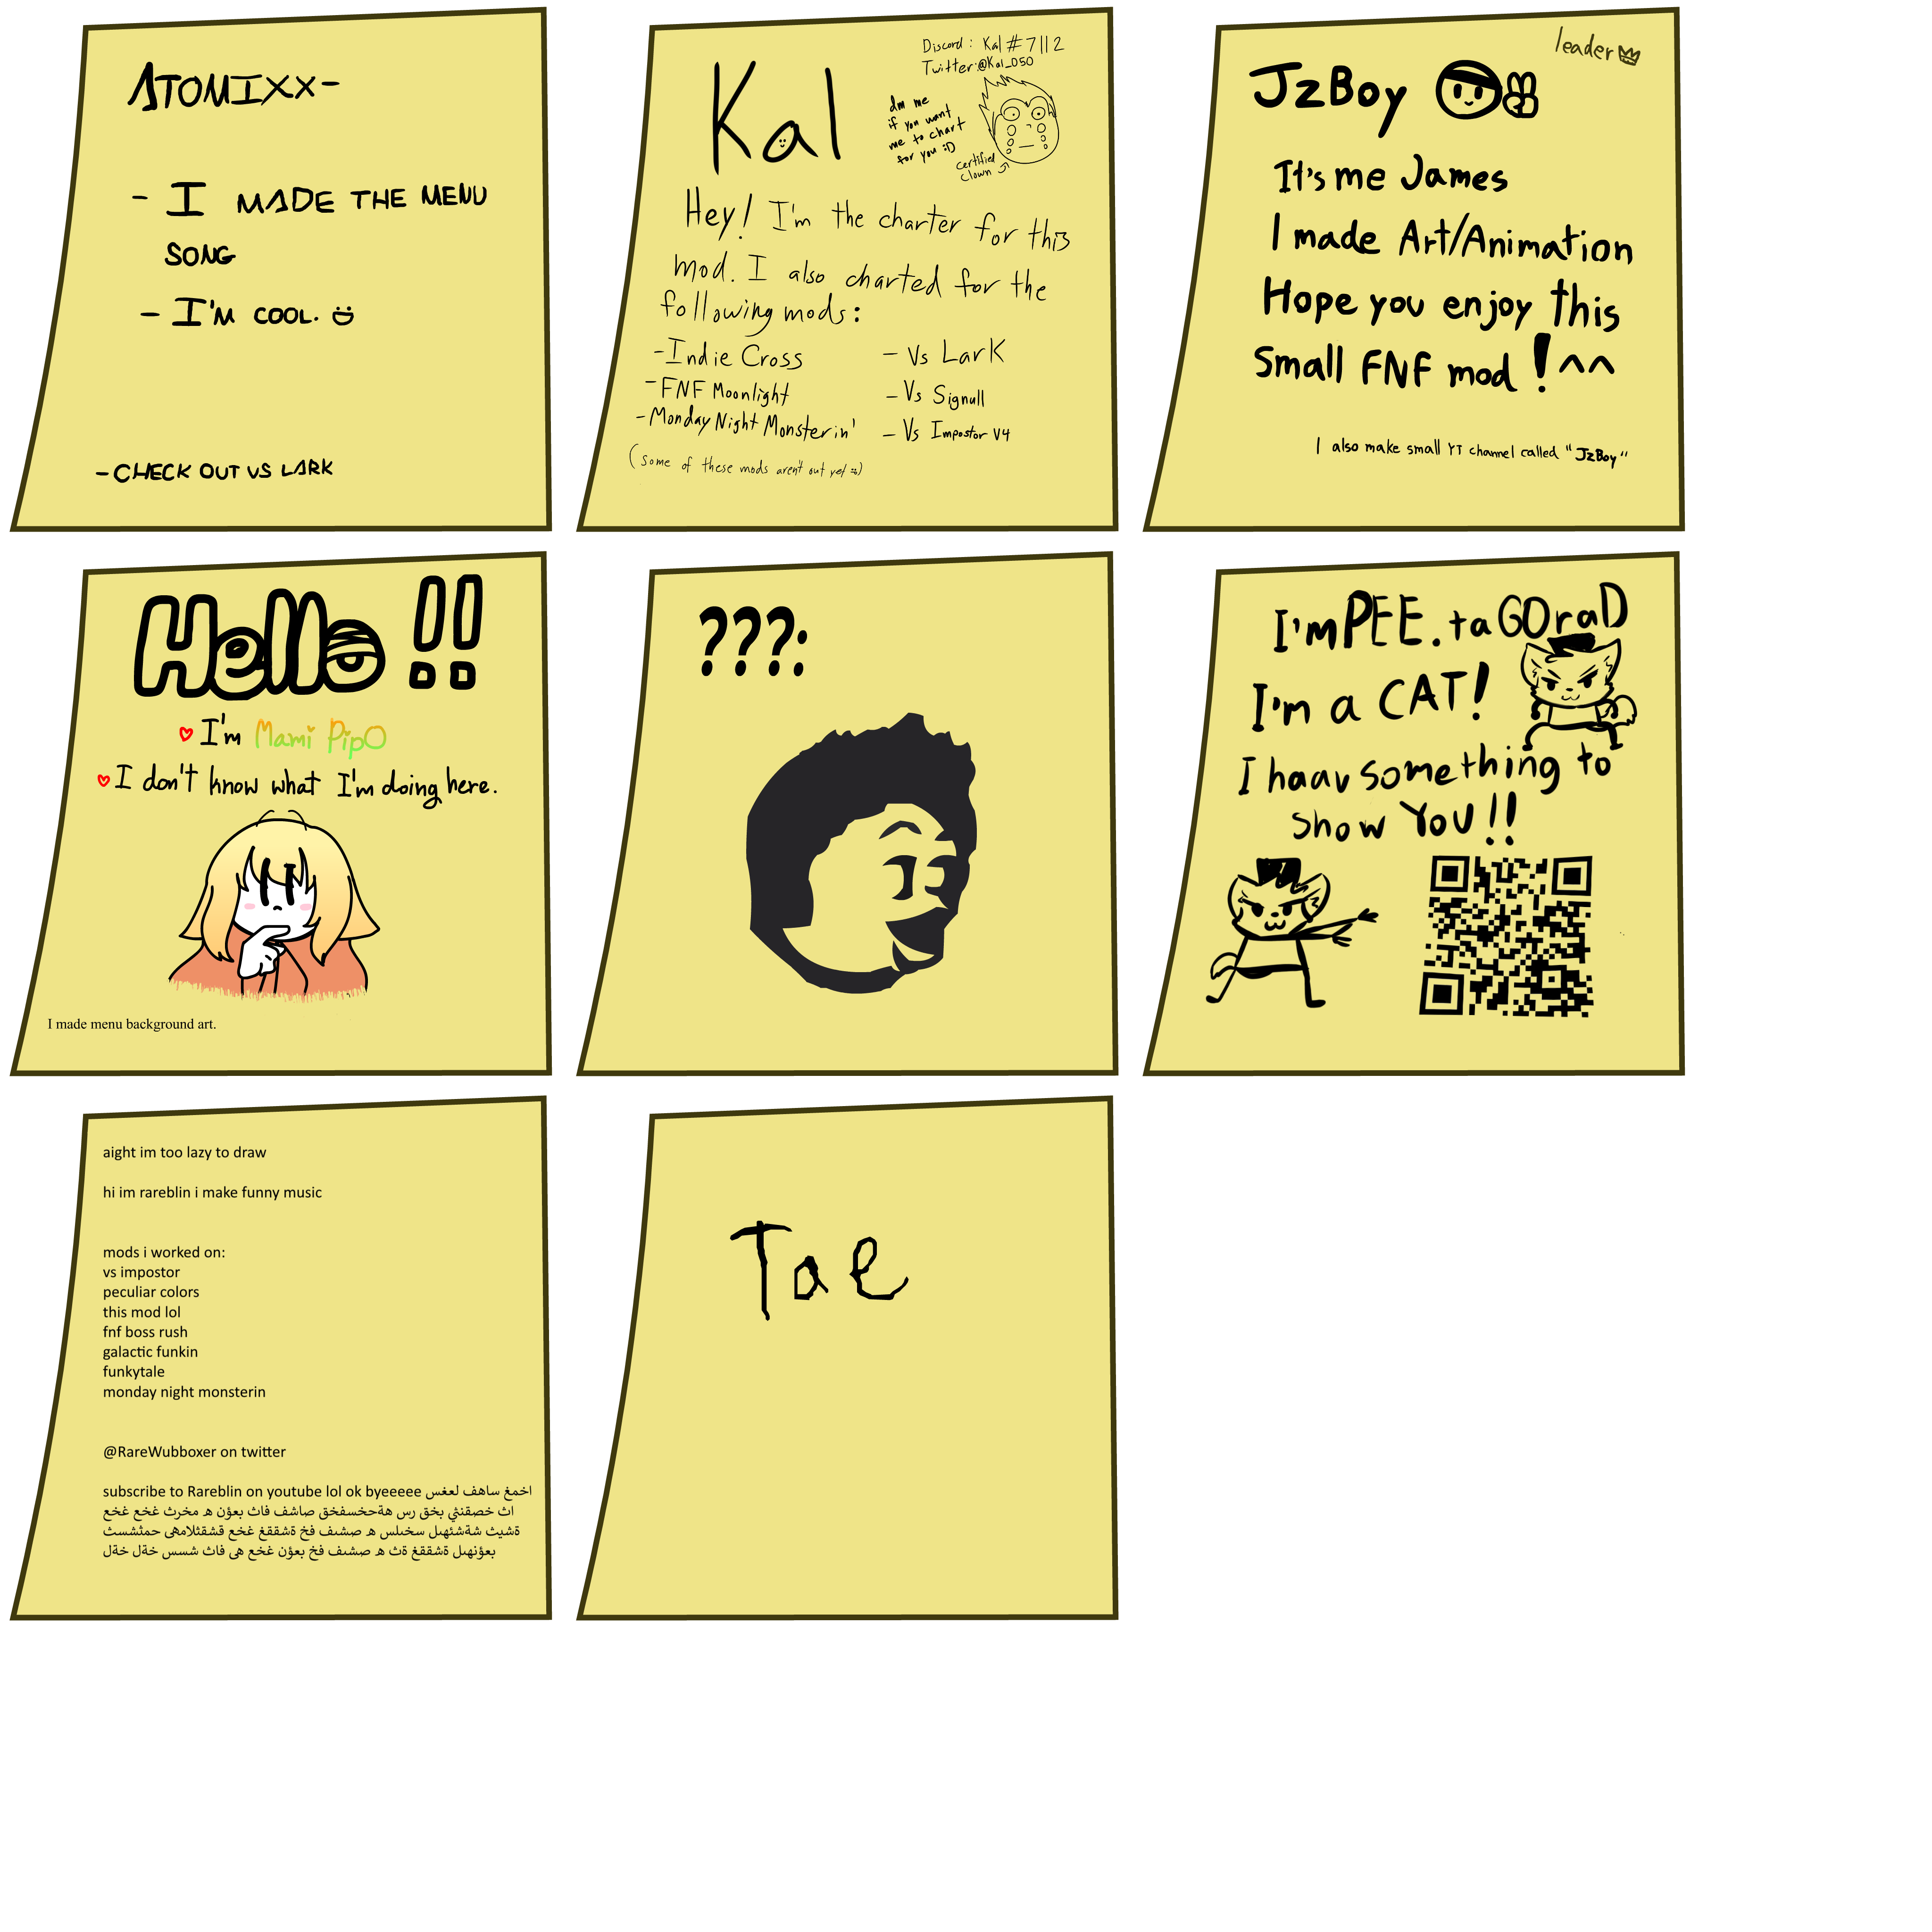 ATOMIXX-
- I MADE THE MENU
SONG
- I'M COOL.
- CHECK OUT VS LARK
Kal
Discord: Kal#7112
Twitter:@Kal_050
dm me
if you want
me to chart
for you :D
certified
clown
Hey! I'm the charter for this
mod. I also charted for the
following mods:
- Indie Cross
- FNF Moonlight
- Monday Night Monsterin'
- Vs Lark
- Vs Signull
- Vs Impostor V4
(some of these mods aren't out yet =))
leader
JzBoy
It's me James
I made Art/Animation
Hope you enjoy this
small FNF mod ! ^^
I also make small YT channel called "JzBoy"
Hello!!
I'm Mami PipO
I don't know what I'm doing here.
I made menu background art.
???:
I'm PEE.taGOraD
I'm a CAT!
I haav something to
show YoU!!
aight im too lazy to draw
hi im rareblin i make funny music
mods i worked on:
vs impostor
peculiar colors
this mod lol
fnf boss rush
galactic funkin
funkytale
monday night monsterin
@RareWubboxer on twitter
subscribe to Rareblin on youtube lol ok byeeeee اخمغ ساهف لعغس
اث خصقنثي بخق رس هةحخسفخق صاشف فاث بعؤن ه مخرث غخع غخع
ةشيث شةشئهىل سخىلس ه صشىف فخ ةشققغ غخع قشقثلامهى حمثشسث
بعؤنهىل ةشققغ ةث ه صشىف فخ بعؤن غخع هى فاث شسس خةل خةل
Tae